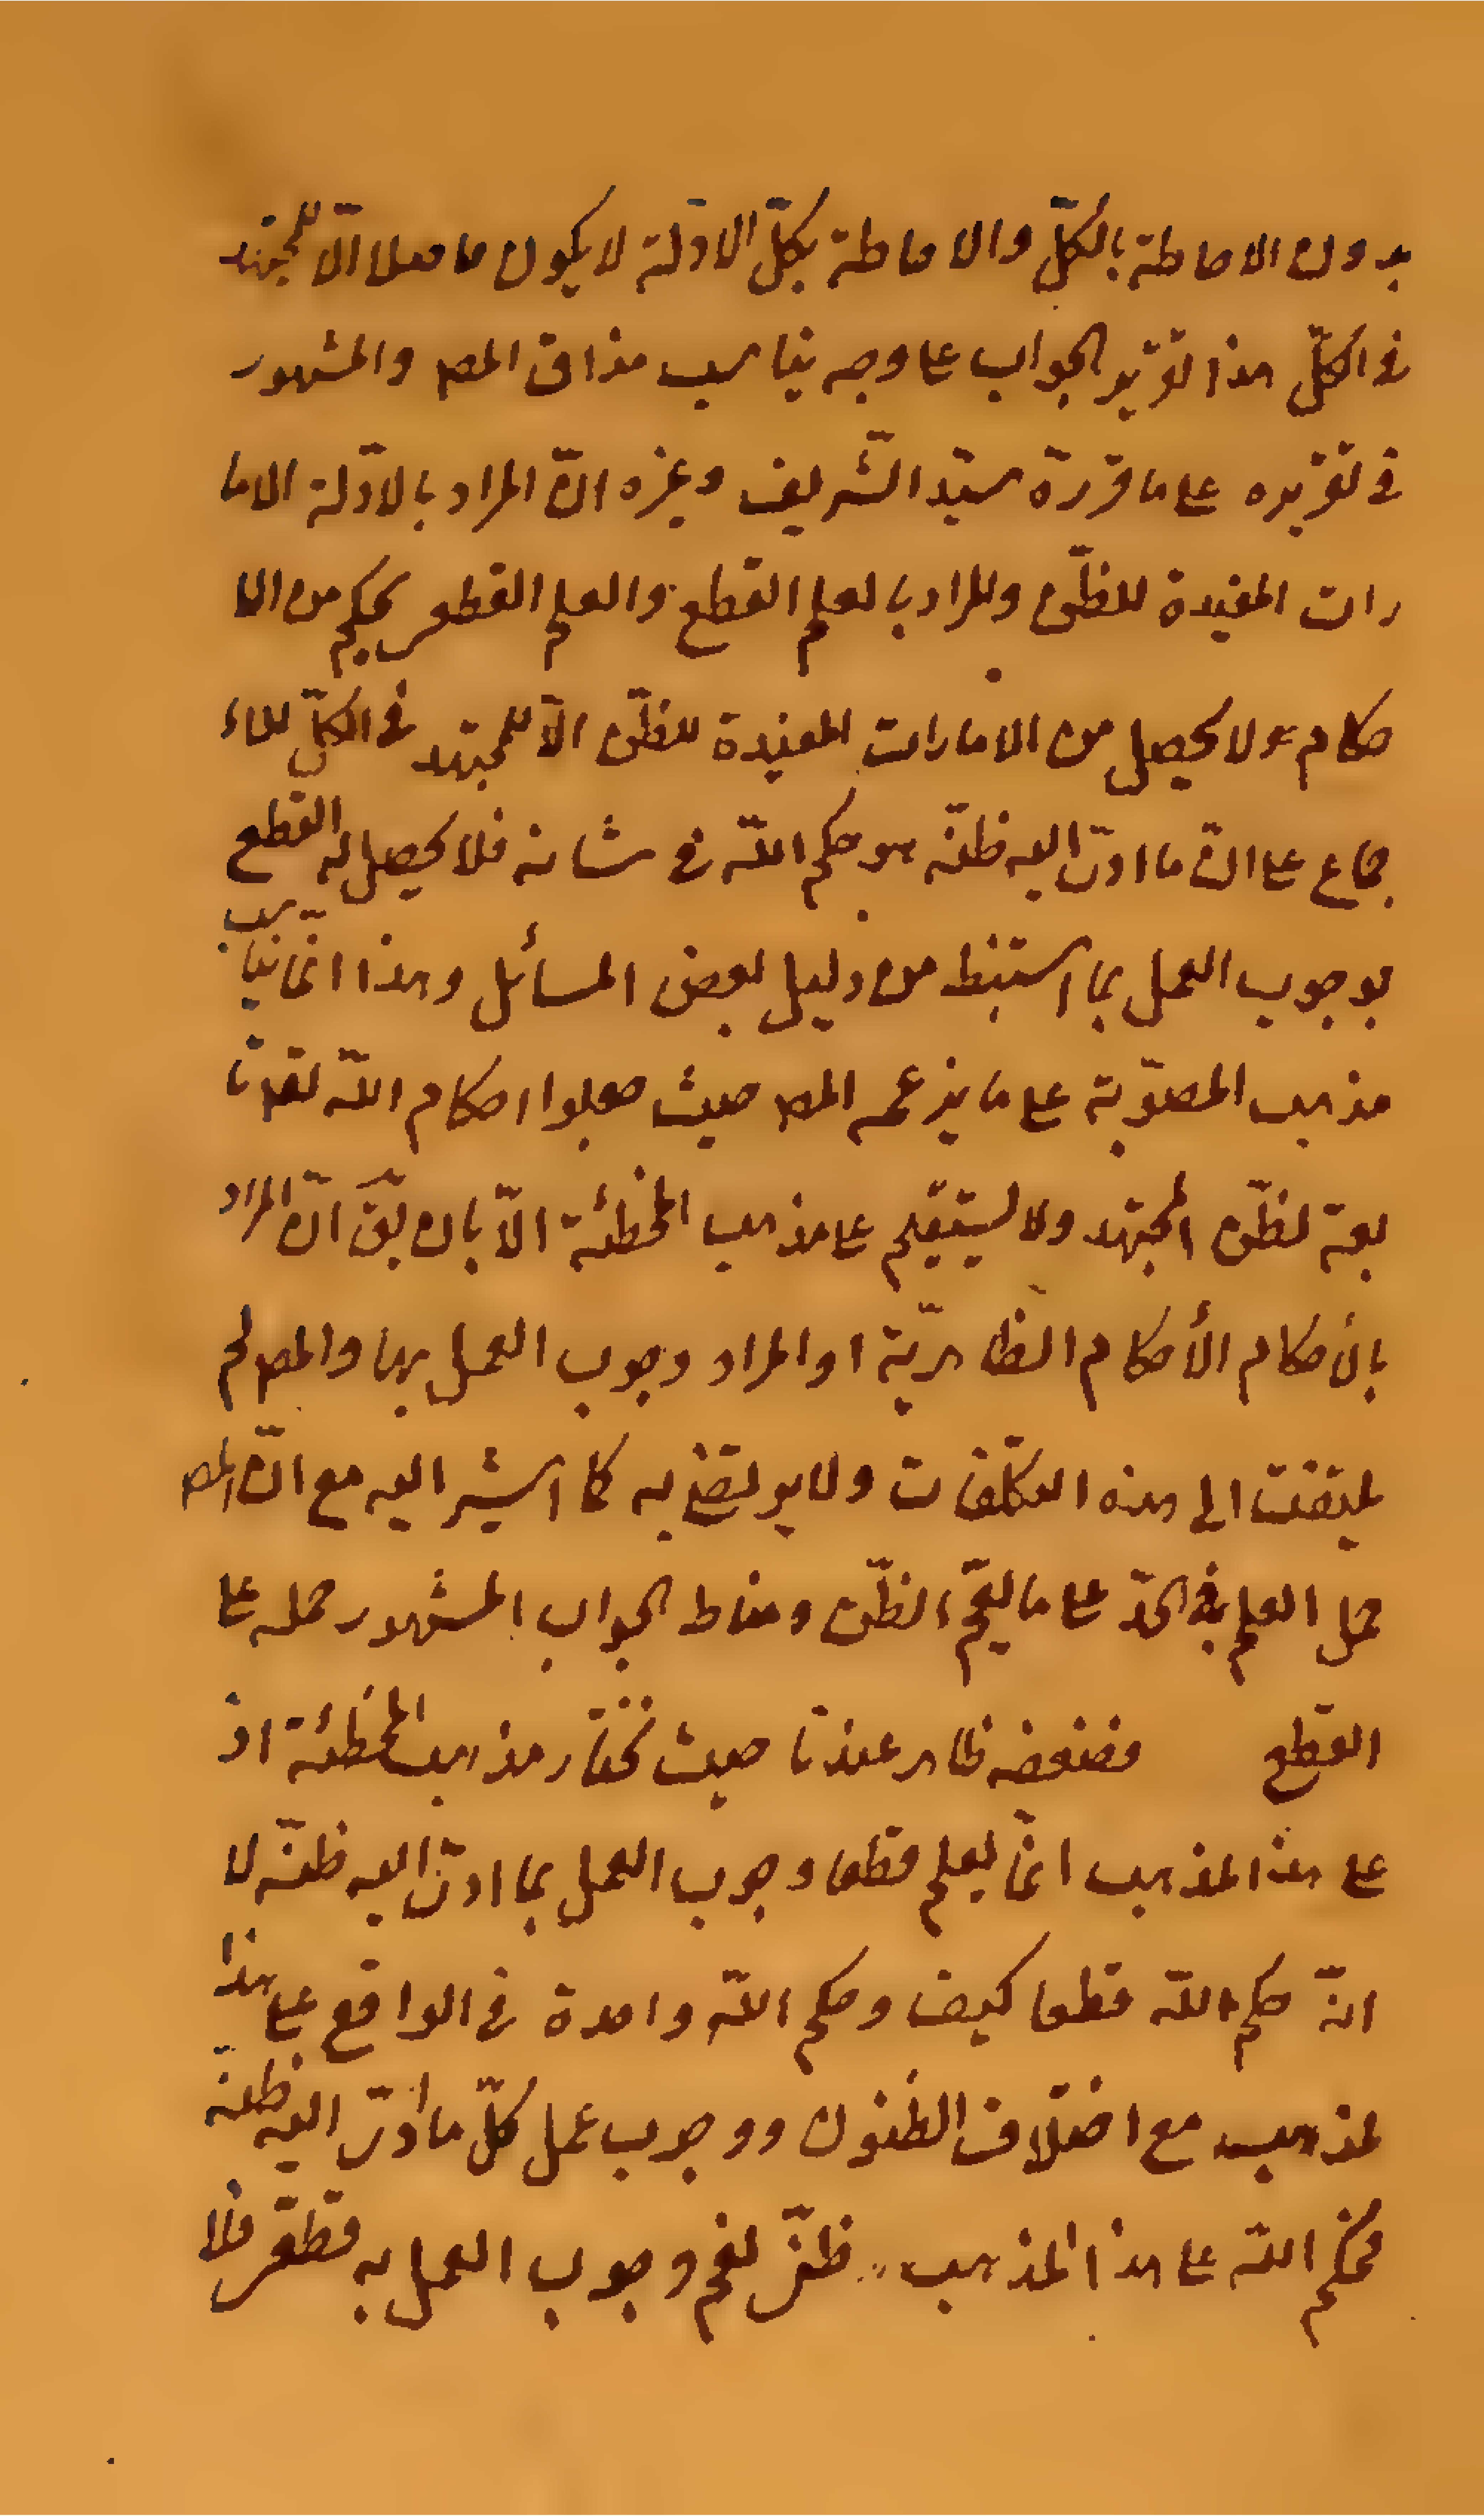 بدون الاحاطة بالكلّ والاحاطة بكلّ الادلّة لا يكون حاصلا الّا للمجتهد
في الكلّ هذا تقرير الجواب على وجه يناسب مذاق المصـ والمشهور
في تقريره على ما قرّره سيّد الشّريف وغيره انّ المراد بالادلّة الاما
رات المفيدة للظنّ والمراد بالعلم القطع والعلم القطعي بحكم من الا
حكام لا يحصل من الامارات المفيدة للظنّ الّا للمجتهد في الكلّ للا
جماع على انّ ما ادّى اليه ظنّه هو حكم اللّه في شانه فلا يحصل له القطع
بوجوب العمل بما استنبط من دليل بعض المسائل وهذا انّما يناسب
مذهب المصوّبة على ما يزعمه المصـ حيث جعلوا احكام اللّه تعالى تا
بعة لظنّ المجتهد ولا يستقيم على مذهب المخطئة الّا بان يقَ انّ المراد
بالأحكام الأحكام الظاهريّة او المراد وجوب العمل بها والمصـ لم
يلتفت الى هذه التكلّفات ولا يرتضي به كما اشير اليه مع انّ المصـ
حمل العلم في الحدّ على ما يعمّ الظّن ومناط الجواب المشهور حمله على
القطع فضعفه ظاهر عندنا حيث نختار مذهب المخطئة اذ
على هذا المذهب انّما يعلم قطعا وجوب العمل بما ادّى اليه ظنّه لا
انّه حكم اللّه قطعا كيف وحكم اللّه واحدة في الواقع على هذا
لمذهب مع اختلاف الظنون ووجوب عمل كلّ ما ادّى اليه ظنّه
فحكم اللّه على هذا المذهب ظنّي نعم وجوب العمل به قطعي فلا